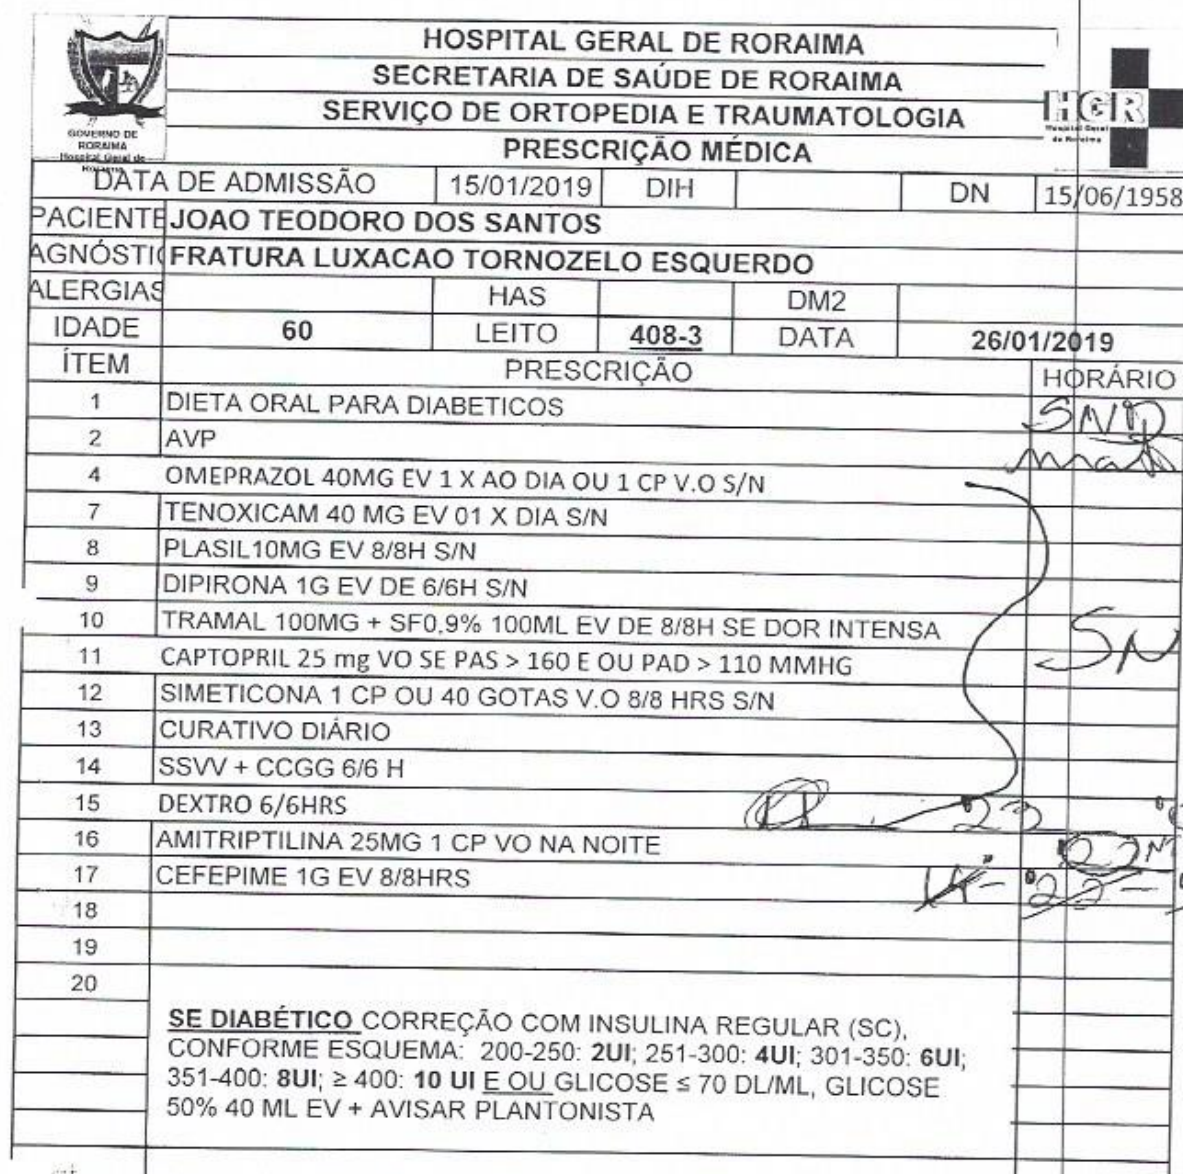 HOSPITAL GERAL DE RORAIMA
SECRETARIA DE SAÚDE DE RORAIMA
SERVIÇO DE ORTOPEDIA E TRAUMATOLOGIA
PRESCRIÇÃO MÉDICA
GOVERNO DE
RORAIMA
Hospital Geral de
HGR
Hospital Geral
de Roraima
DATA DE ADMISSÃO 15/01/2019 DIH DN 15/06/1958
PACIENTE JOAO TEODORO DOS SANTOS
AGNÓSTIC FRATURA LUXACAO TORNOZELO ESQUERDO
ALERGIAS HAS DM2
IDADE 60 LEITO 408-3 DATA 26/01/2019
ÍTEM PRESCRIÇÃO HORÁRIO
1 DIETA ORAL PARA DIABETICOS SND
2 AVP
4 OMEPRAZOL 40MG EV 1 X AO DIA OU 1 CP V.O S/N
7 TENOXICAM 40 MG EV 01 X DIA S/N
8 PLASIL10MG EV 8/8H S/N
9 DIPIRONA 1G EV DE 6/6H S/N
10 TRAMAL 100MG + SF0,9% 100ML EV DE 8/8H SE DOR INTENSA SN
11 CAPTOPRIL 25 mg VO SE PAS > 160 E OU PAD > 110 MMHG
12 SIMETICONA 1 CP OU 40 GOTAS V.O 8/8 HRS S/N
13 CURATIVO DIÁRIO
14 SSVV + CCGG 6/6 H
15 DEXTRO 6/6HRS 23
16 AMITRIPTILINA 25MG 1 CP VO NA NOITE 22
17 CEFEPIME 1G EV 8/8HRS 22
18
19
20
SE DIABÉTICO CORREÇÃO COM INSULINA REGULAR (SC),
CONFORME ESQUEMA: 200-250: 2UI; 251-300: 4UI; 301-350: 6UI;
351-400: 8UI; ≥ 400: 10 UI E OU GLICOSE ≤ 70 DL/ML, GLICOSE
50% 40 ML EV + AVISAR PLANTONISTA